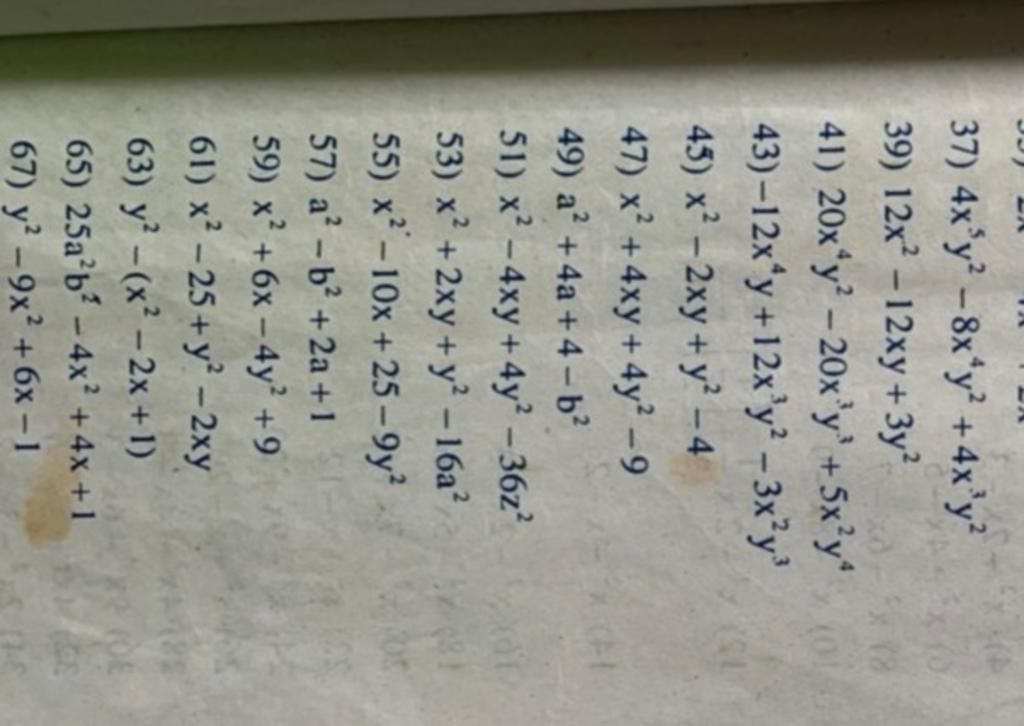 37) 4x⁵y² − 8x⁴y² + 4x³y²
39) 12x² − 12xy + 3y²
41) 20x⁴y² − 20x³y³ + 5x²y⁴
43) −12x⁴y + 12x³y² − 3x²y³
45) x² − 2xy + y² − 4
47) x² + 4xy + 4y² − 9
49) a² + 4a + 4 − b²
51) x² − 4xy + 4y² − 36z²
53) x² + 2xy + y² − 16a²
55) x² − 10x + 25 − 9y²
57) a² − b² + 2a + 1
59) x² + 6x − 4y² + 9
61) x² − 25 + y² − 2xy
63) y² − (x² − 2x + 1)
65) 25a²b² − 4x² + 4x + 1
67) y² − 9x² + 6x − 1